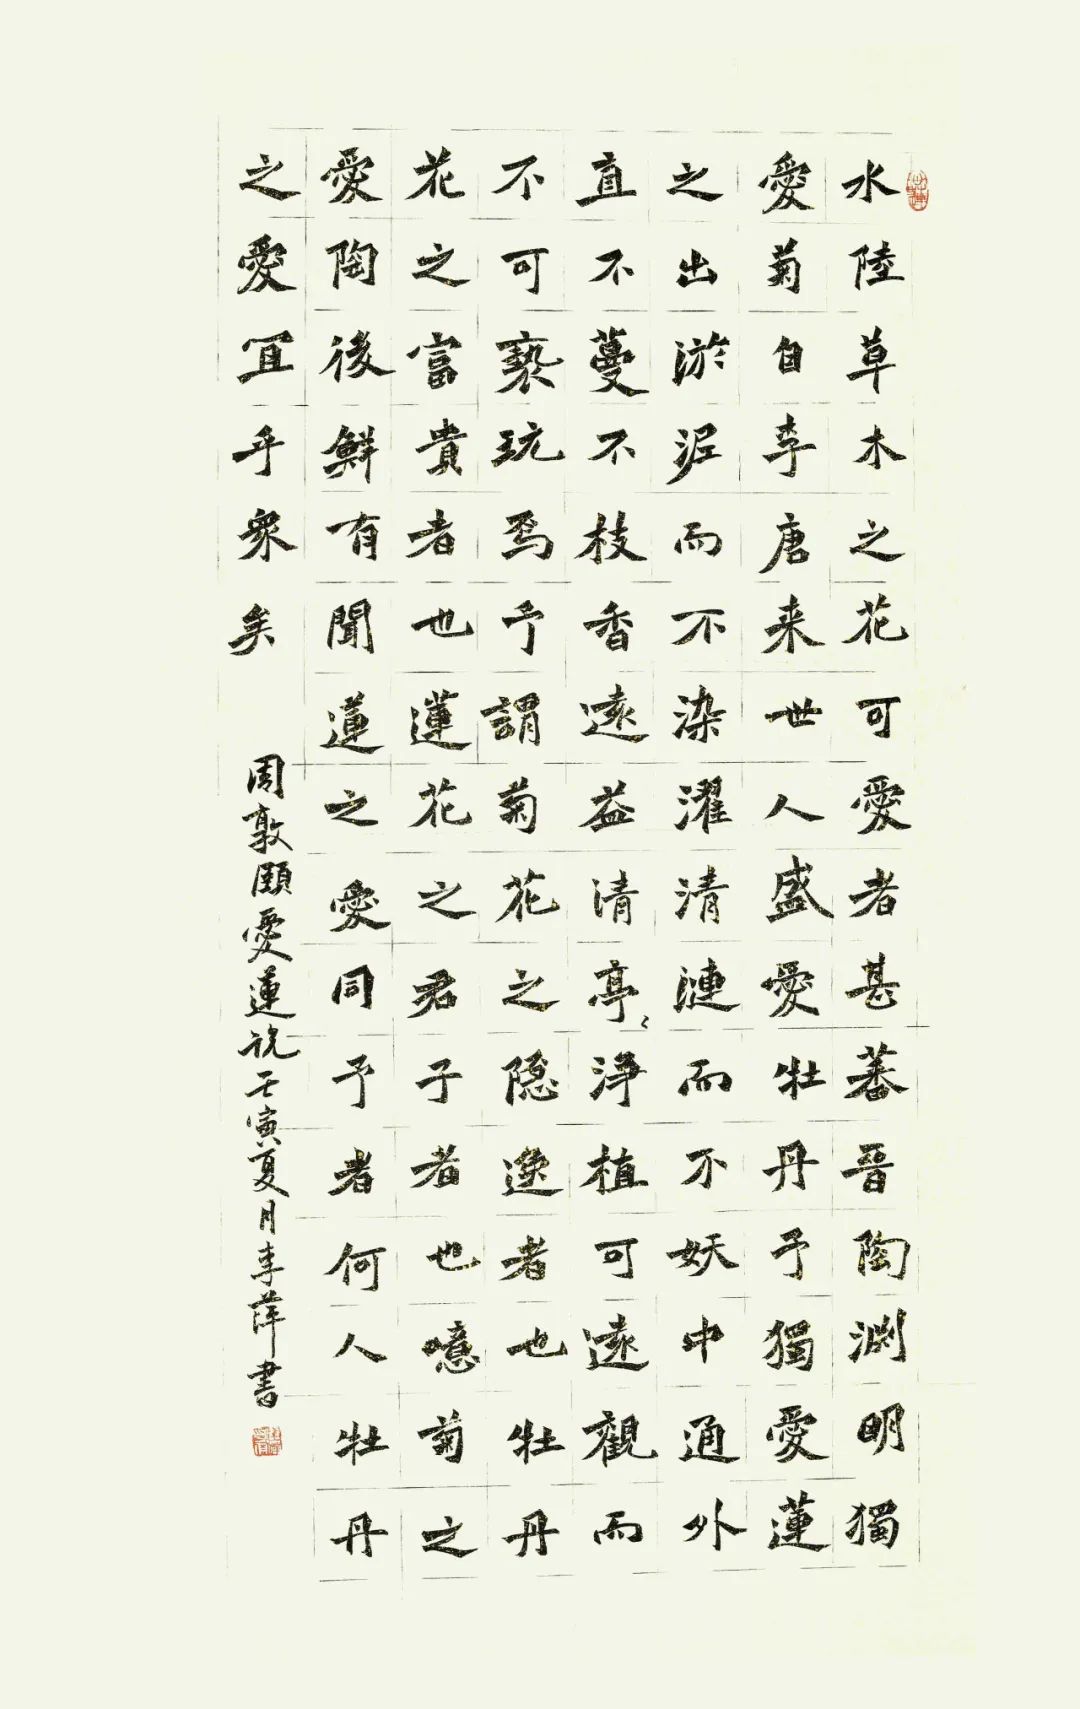 水陸草木之花可愛者甚蕃晉陶淵明獨
愛菊自李唐来世人盛愛牡丹予獨愛蓮
之出淤泥而不染濯清漣而不妖中通外
直不蔓不枝香遠益清亭〻淨植可遠觀而
不可褻玩焉予謂菊花之隐逸者也牡丹
花之富貴者也蓮花之君子者也噫菊之
愛陶後鮮有聞蓮之愛同予者何人牡丹
之愛冝乎衆矣
周敦頤愛蓮説壬寅夏月李萍書